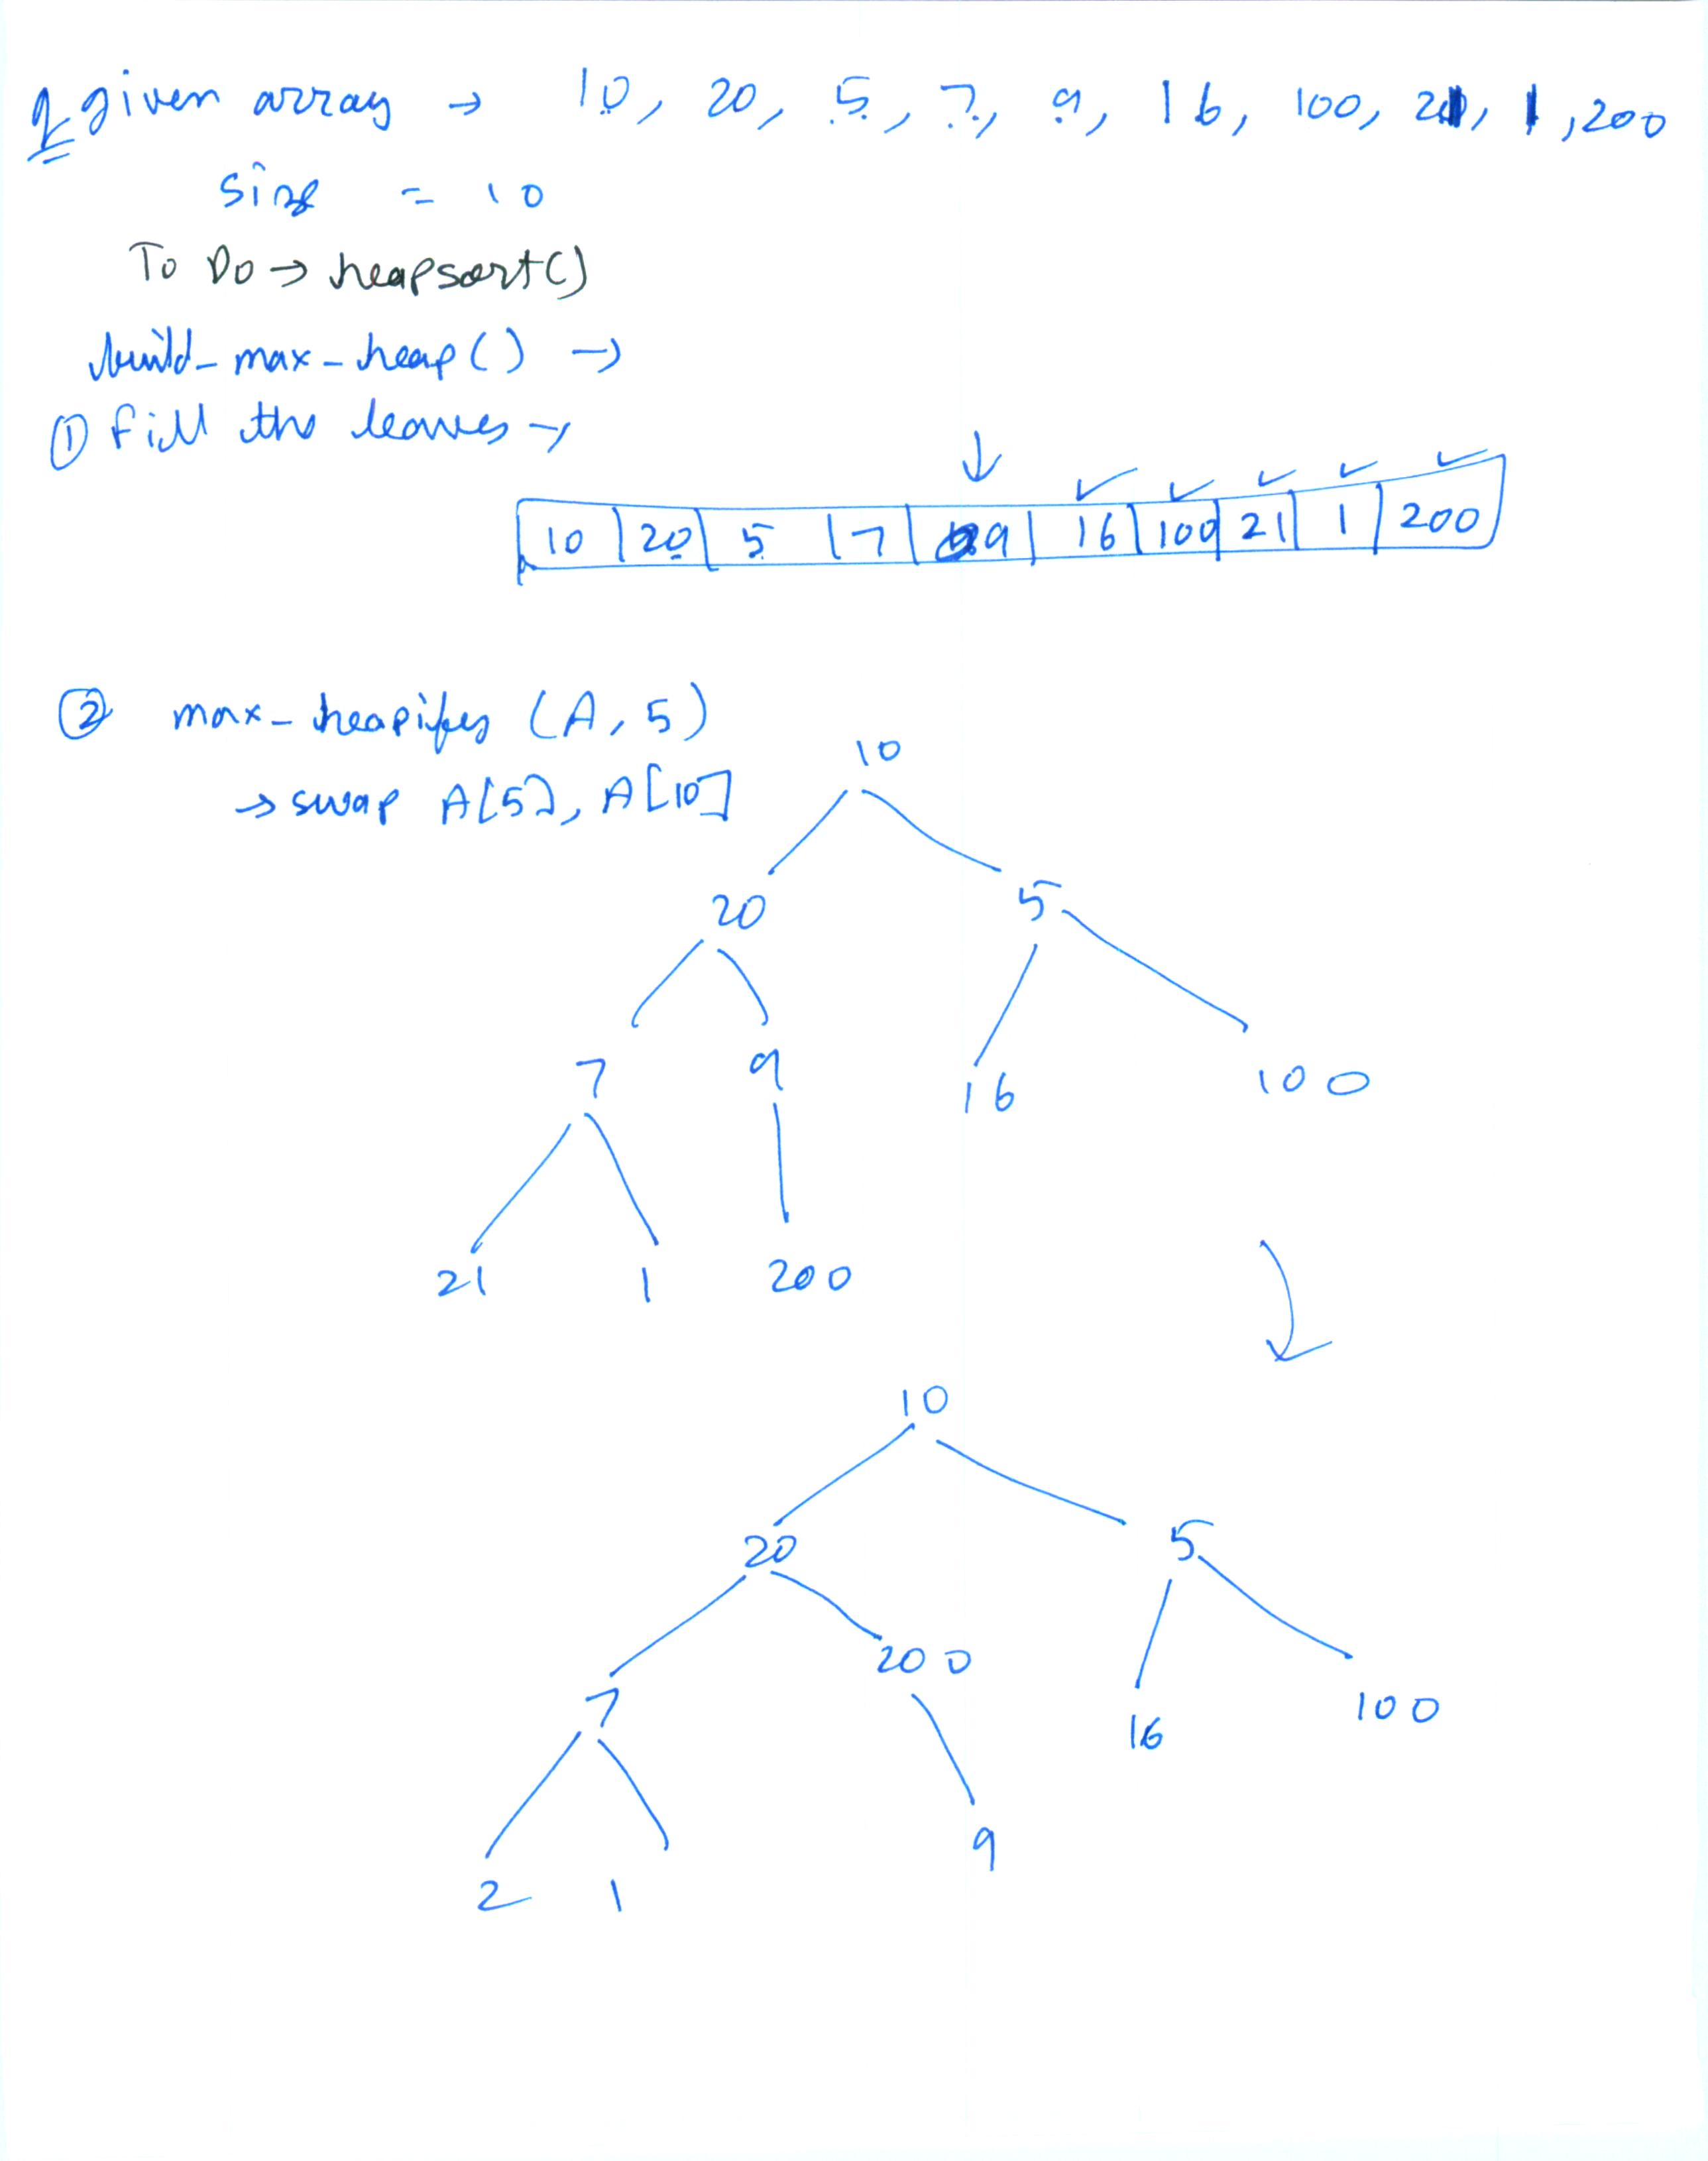 Q given array → 10, 20, 5, 7, 9, 16, 100, 21, 1, 200
size = 10
To Do → heapsort()
build-max-heap() →
① Fill the leaves →
↓ ✓ ✓ ✓ ✓ ✓
10 | 20 | 5 | 7 | 9 | 16 | 100 | 21 | 1 | 200
② max-heapify (A, 5)
→ swap A[5], A[10]
10
20 5
7 9 16 100
21 1 200
10
20 5
7 200 16 100
2 1 9